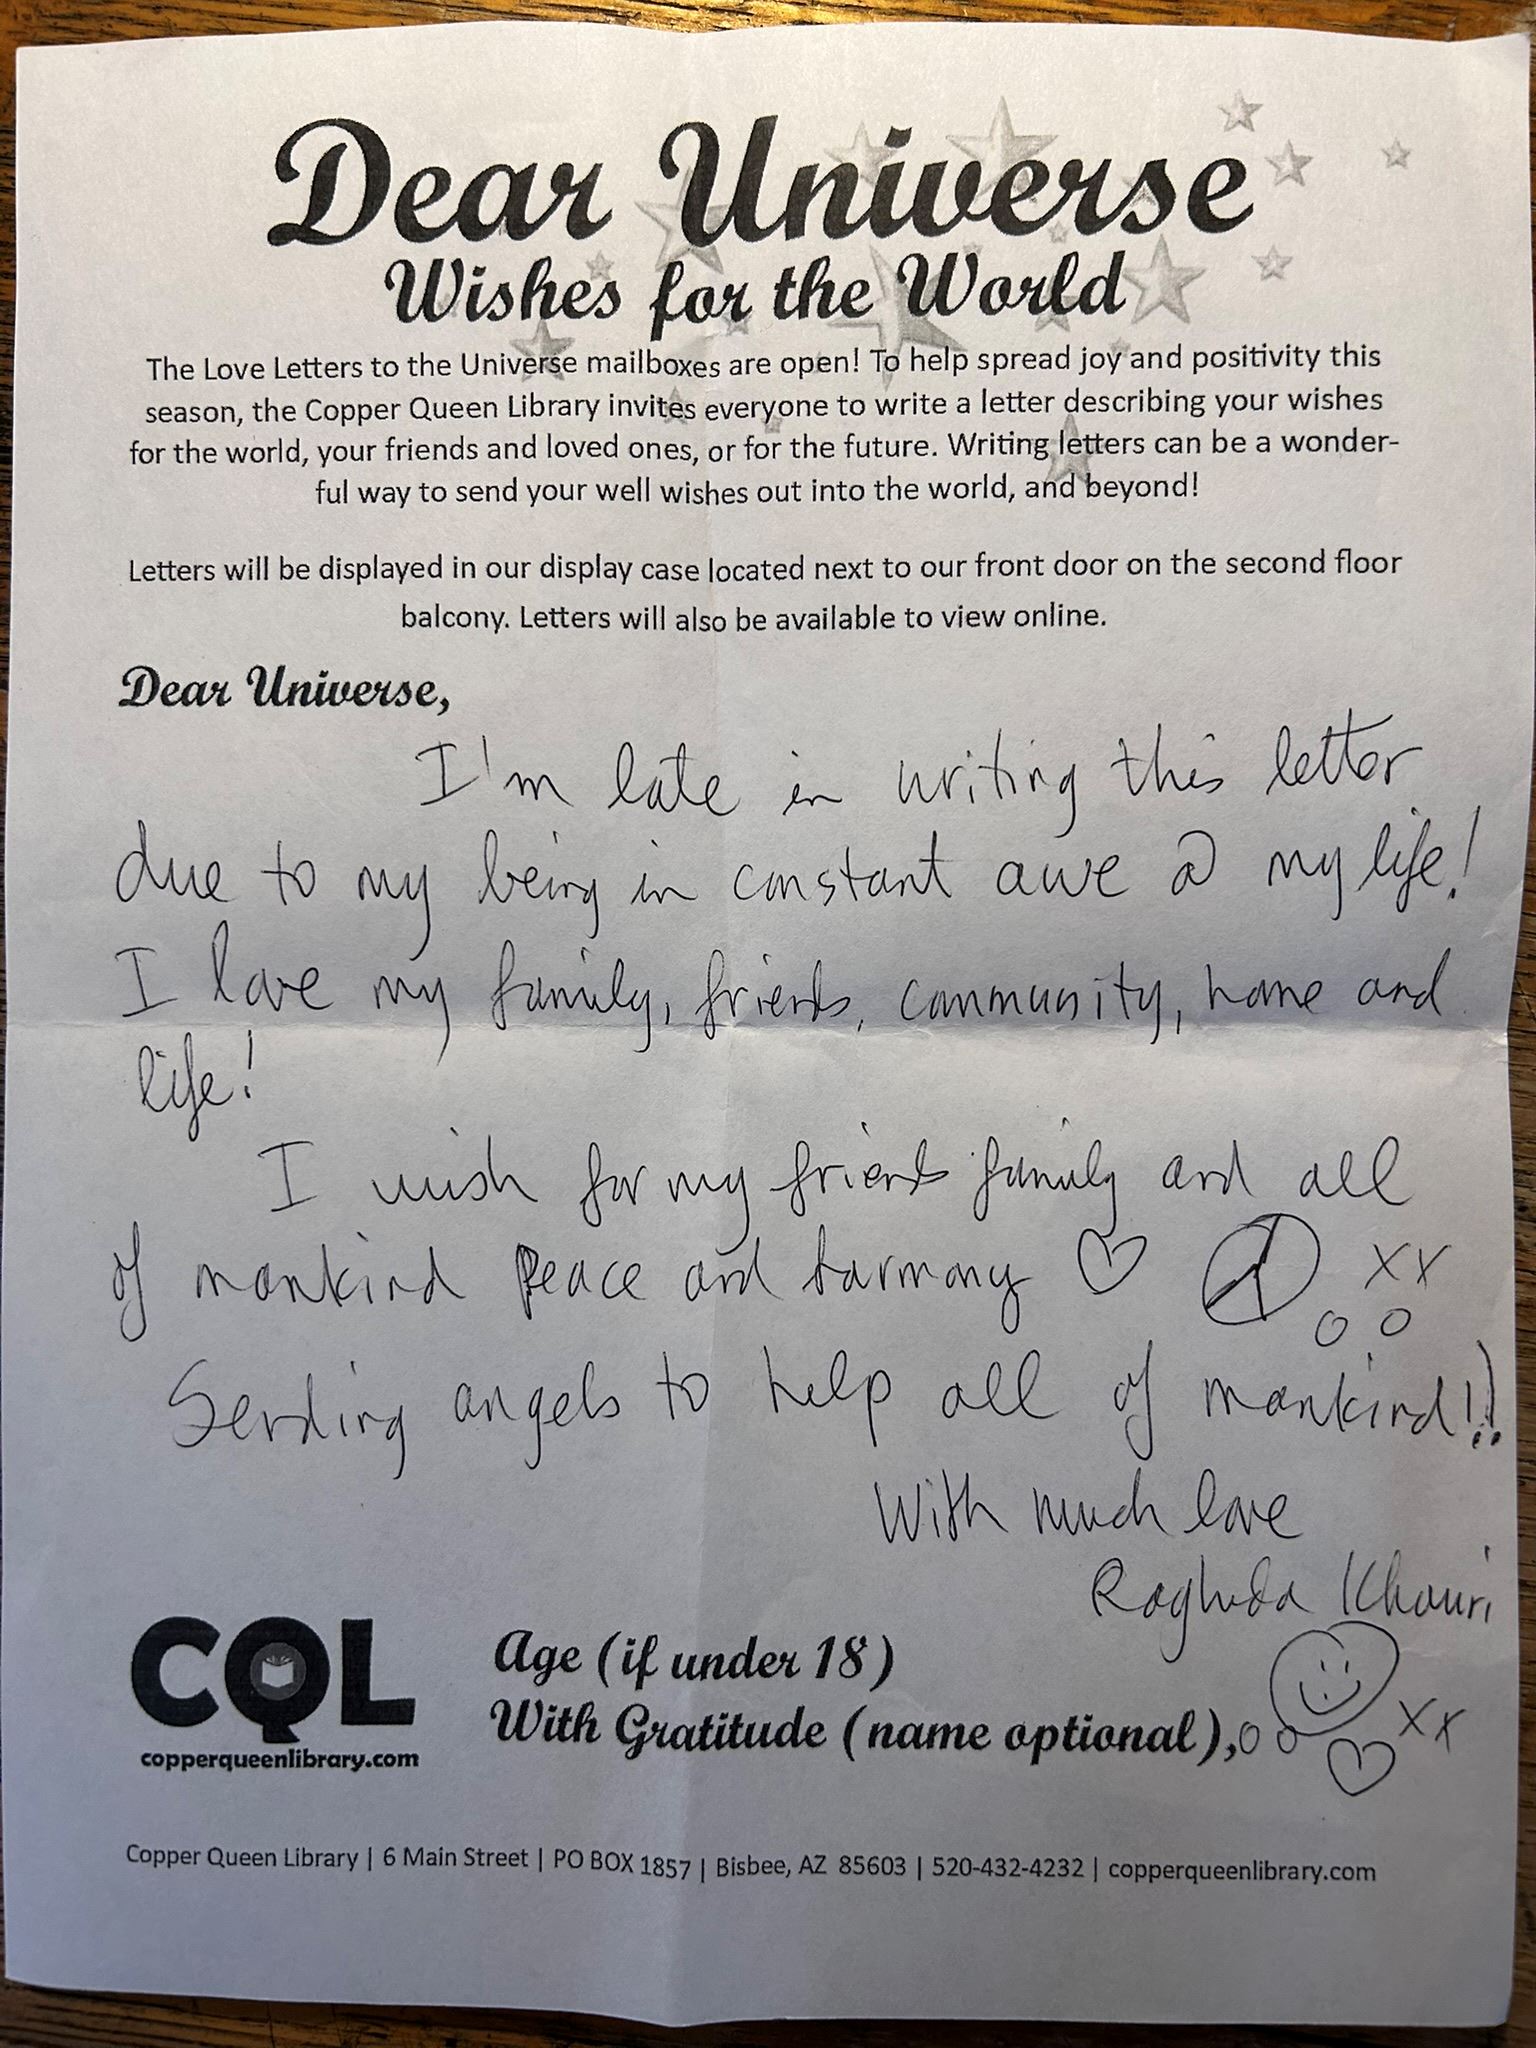 Dear Universe
Wishes for the World
The Love Letters to the Universe mailboxes are open! To help spread joy and positivity this
season, the Copper Queen Library invites everyone to write a letter describing your wishes
for the world, your friends and loved ones, or for the future. Writing letters can be a wonder-
ful way to send your well wishes out into the world, and beyond!
Letters will be displayed in our display case located next to our front door on the second floor
balcony. Letters will also be available to view online.
Dear Universe,
I'm late in writing this letter
due to my being in constant awe @ my life!
I love my family, friends, community, home and
life!
I wish for my friends family and all
of mankind Peace and harmony XX
OO
Sending angels to help all of mankind!!
With much love
Raghida Khouri
CQL
copperqueenlibrary.com
Age (if under 18)
With Gratitude (name optional), OO XX
Copper Queen Library | 6 Main Street | PO BOX 1857 | Bisbee, AZ 85603 | 520-432-4232 | copperqueenlibrary.com